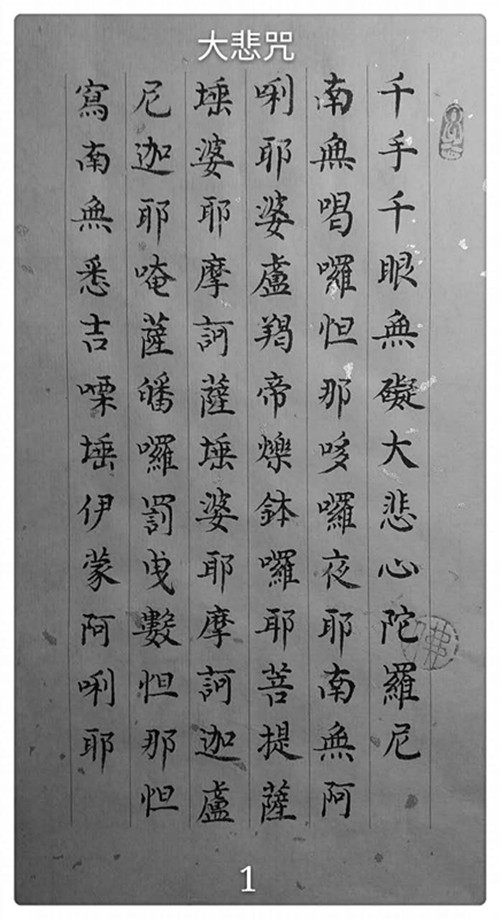 大悲咒
千手千眼無礙大悲心陀羅尼
南無喝囉怛那哆囉夜耶南無阿
唎耶婆盧羯帝爍鉢囉耶菩提薩
埵婆耶摩訶薩埵婆耶摩訶迦盧
尼迦耶唵薩皤囉罰曳數怛那怛
寫南無悉吉㗚埵伊蒙阿唎耶
1